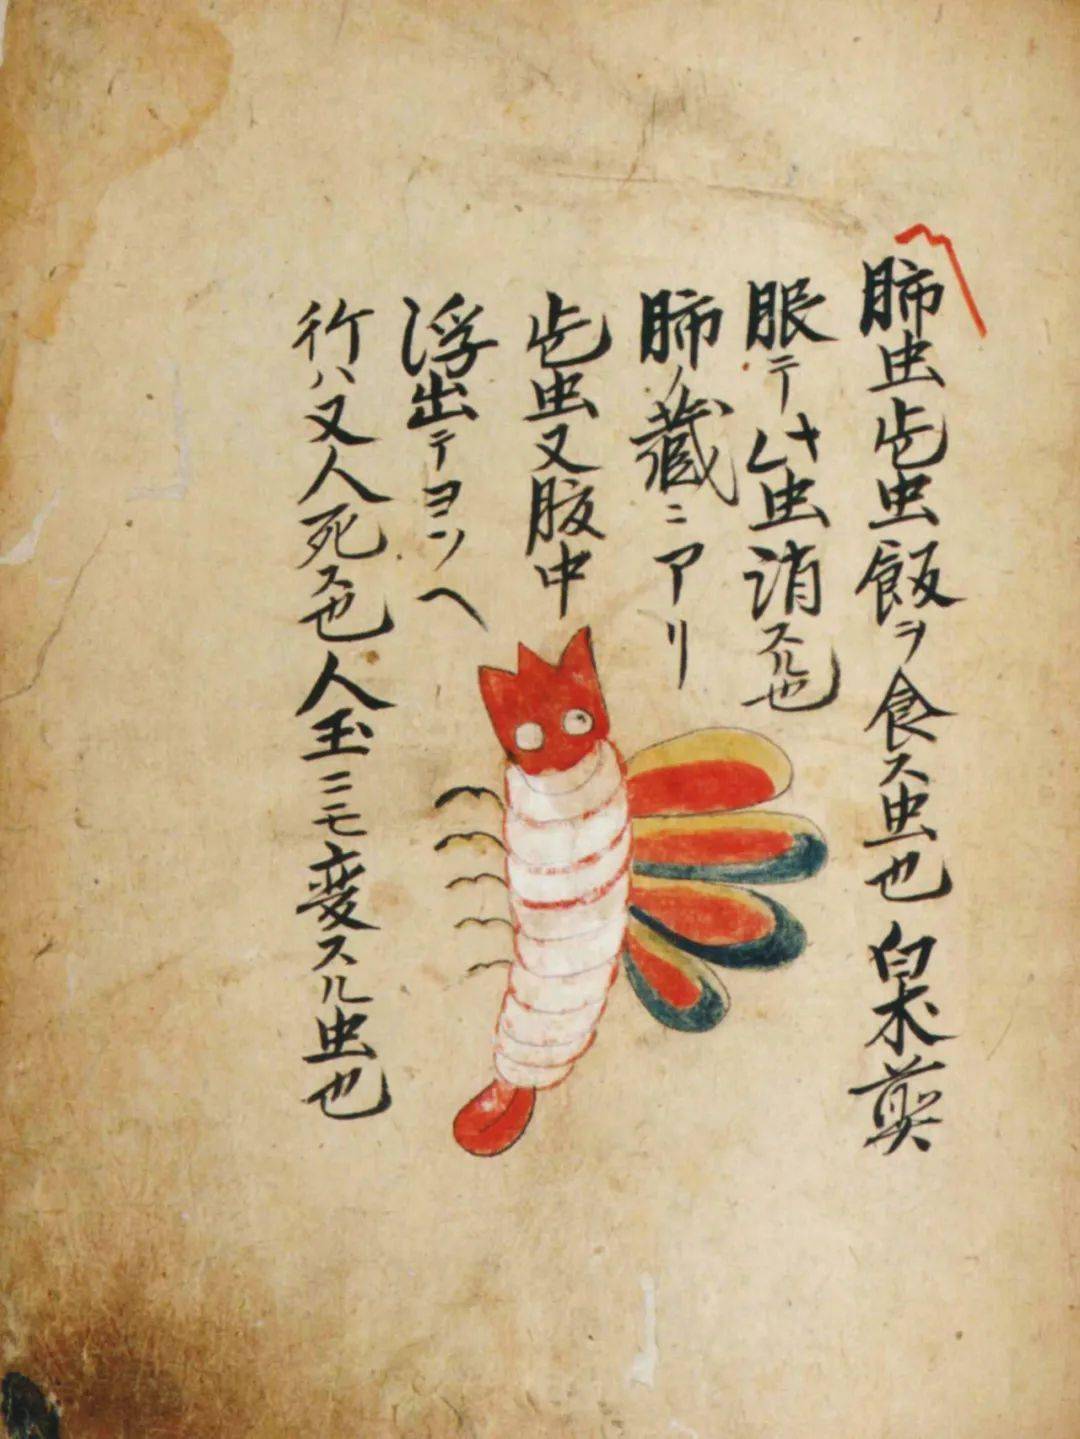 肺虫此虫飯ヲ食ス虫也白朮煎
服テ此虫消スル也
肺ノ蔵ニアリ
此虫又腹中
浮出テヨソヘ
行ハ又人死ス也人玉ニモ変スル虫也